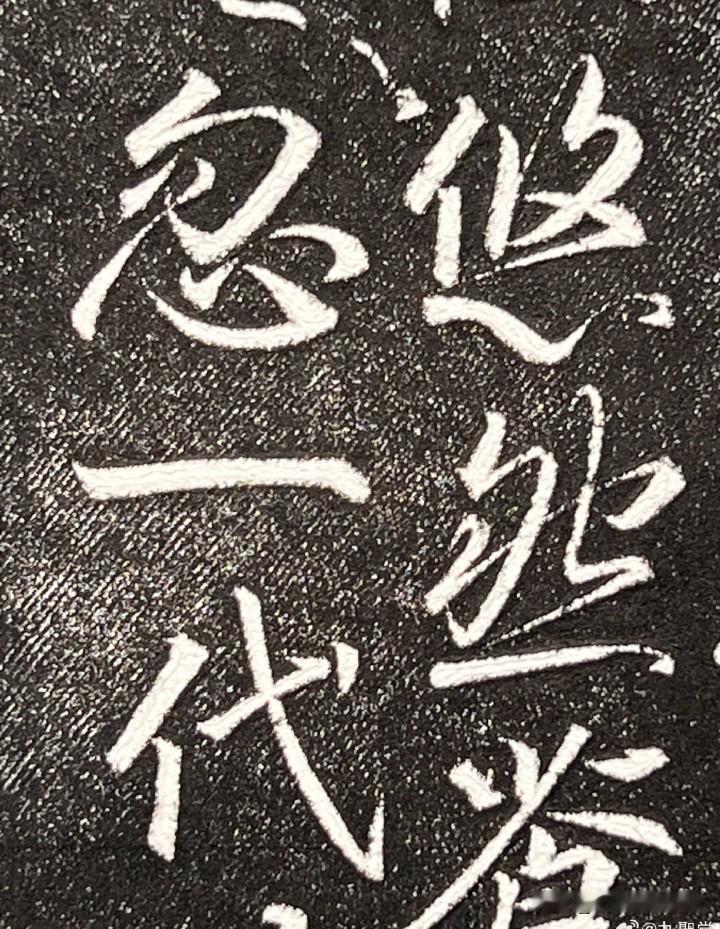 悠然
忽一代